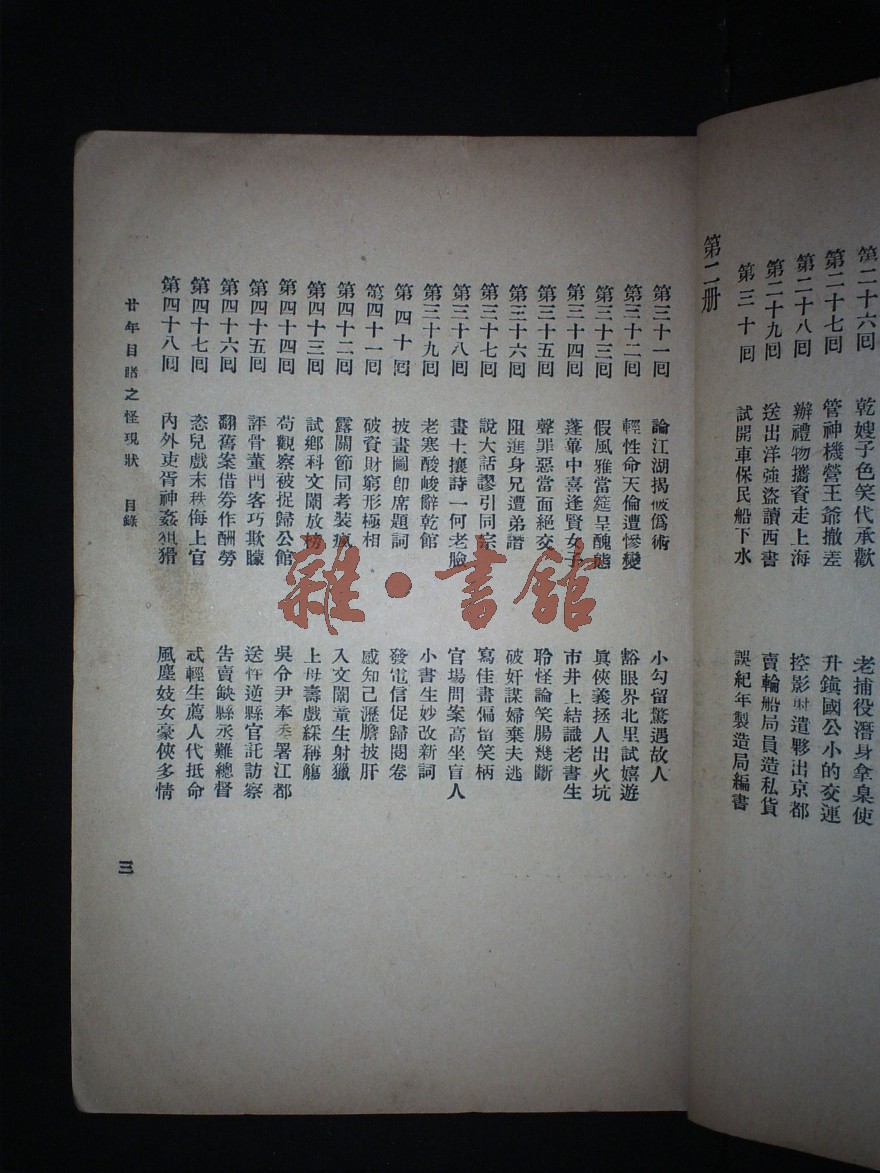 第二十六回 乾嫂子色笑代承歡 老捕役潛身拿臬使
第二十七回 管神機營王爺撤差 升鎭國公小的交運
第二十八回 辦禮物攜資走上海 控影射遣夥出京都
第二十九回 送出洋強盜讀西書 賣輪船局員造私貨
第三十回 試開車保民船下水 誤紀年製造局編書
第二册
第三十一回 論江湖揭破僞術 小勾留驚遇故人
第三十二回 輕性命天倫遭慘變 豁眼界北里試嬉遊
第三十三回 假風雅當筵呈醜態 眞俠義拯人出火坑
第三十四回 蓬蓽中喜逢賢女子 市井上結識老書生
第三十五回 聲罪惡當面絕交 聆怪論笑腸幾斷
第三十六回 阻進身兄遭弟譖 破奸謀婦棄夫逃
第三十七回 說大話謬引同宗 寫佳畫偏留笑柄
第三十八回 畫士攘詩一何老臉 官場問案高坐盲人
第三十九回 老寒酸峻辭乾館 小書生妙改新詞
第四十回 披畫圖卽席題詞 發電信促歸閱卷
第四十一回 破資財窮形極相 感知己瀝膽披肝
第四十二回 露關節同考裝瘋 入文闈童生射獵
第四十三回 試鄉科文闈放榜 上母壽戲綵稱觴
第四十四回 苟觀察被捉歸公館 吳令尹奉委署江都
第四十五回 評骨董門客巧欺矇 送忤逆縣官託訪察
第四十六回 翻舊案借券作酬勞 告賣缺縣丞難總督
第四十七回 恣兒戲末秩侮上官 忒輕生薦人代抵命
第四十八回 內外吏胥神姦狙猾 風塵妓女豪俠多情
廿年目睹之怪現狀 目錄
三
雜·書館